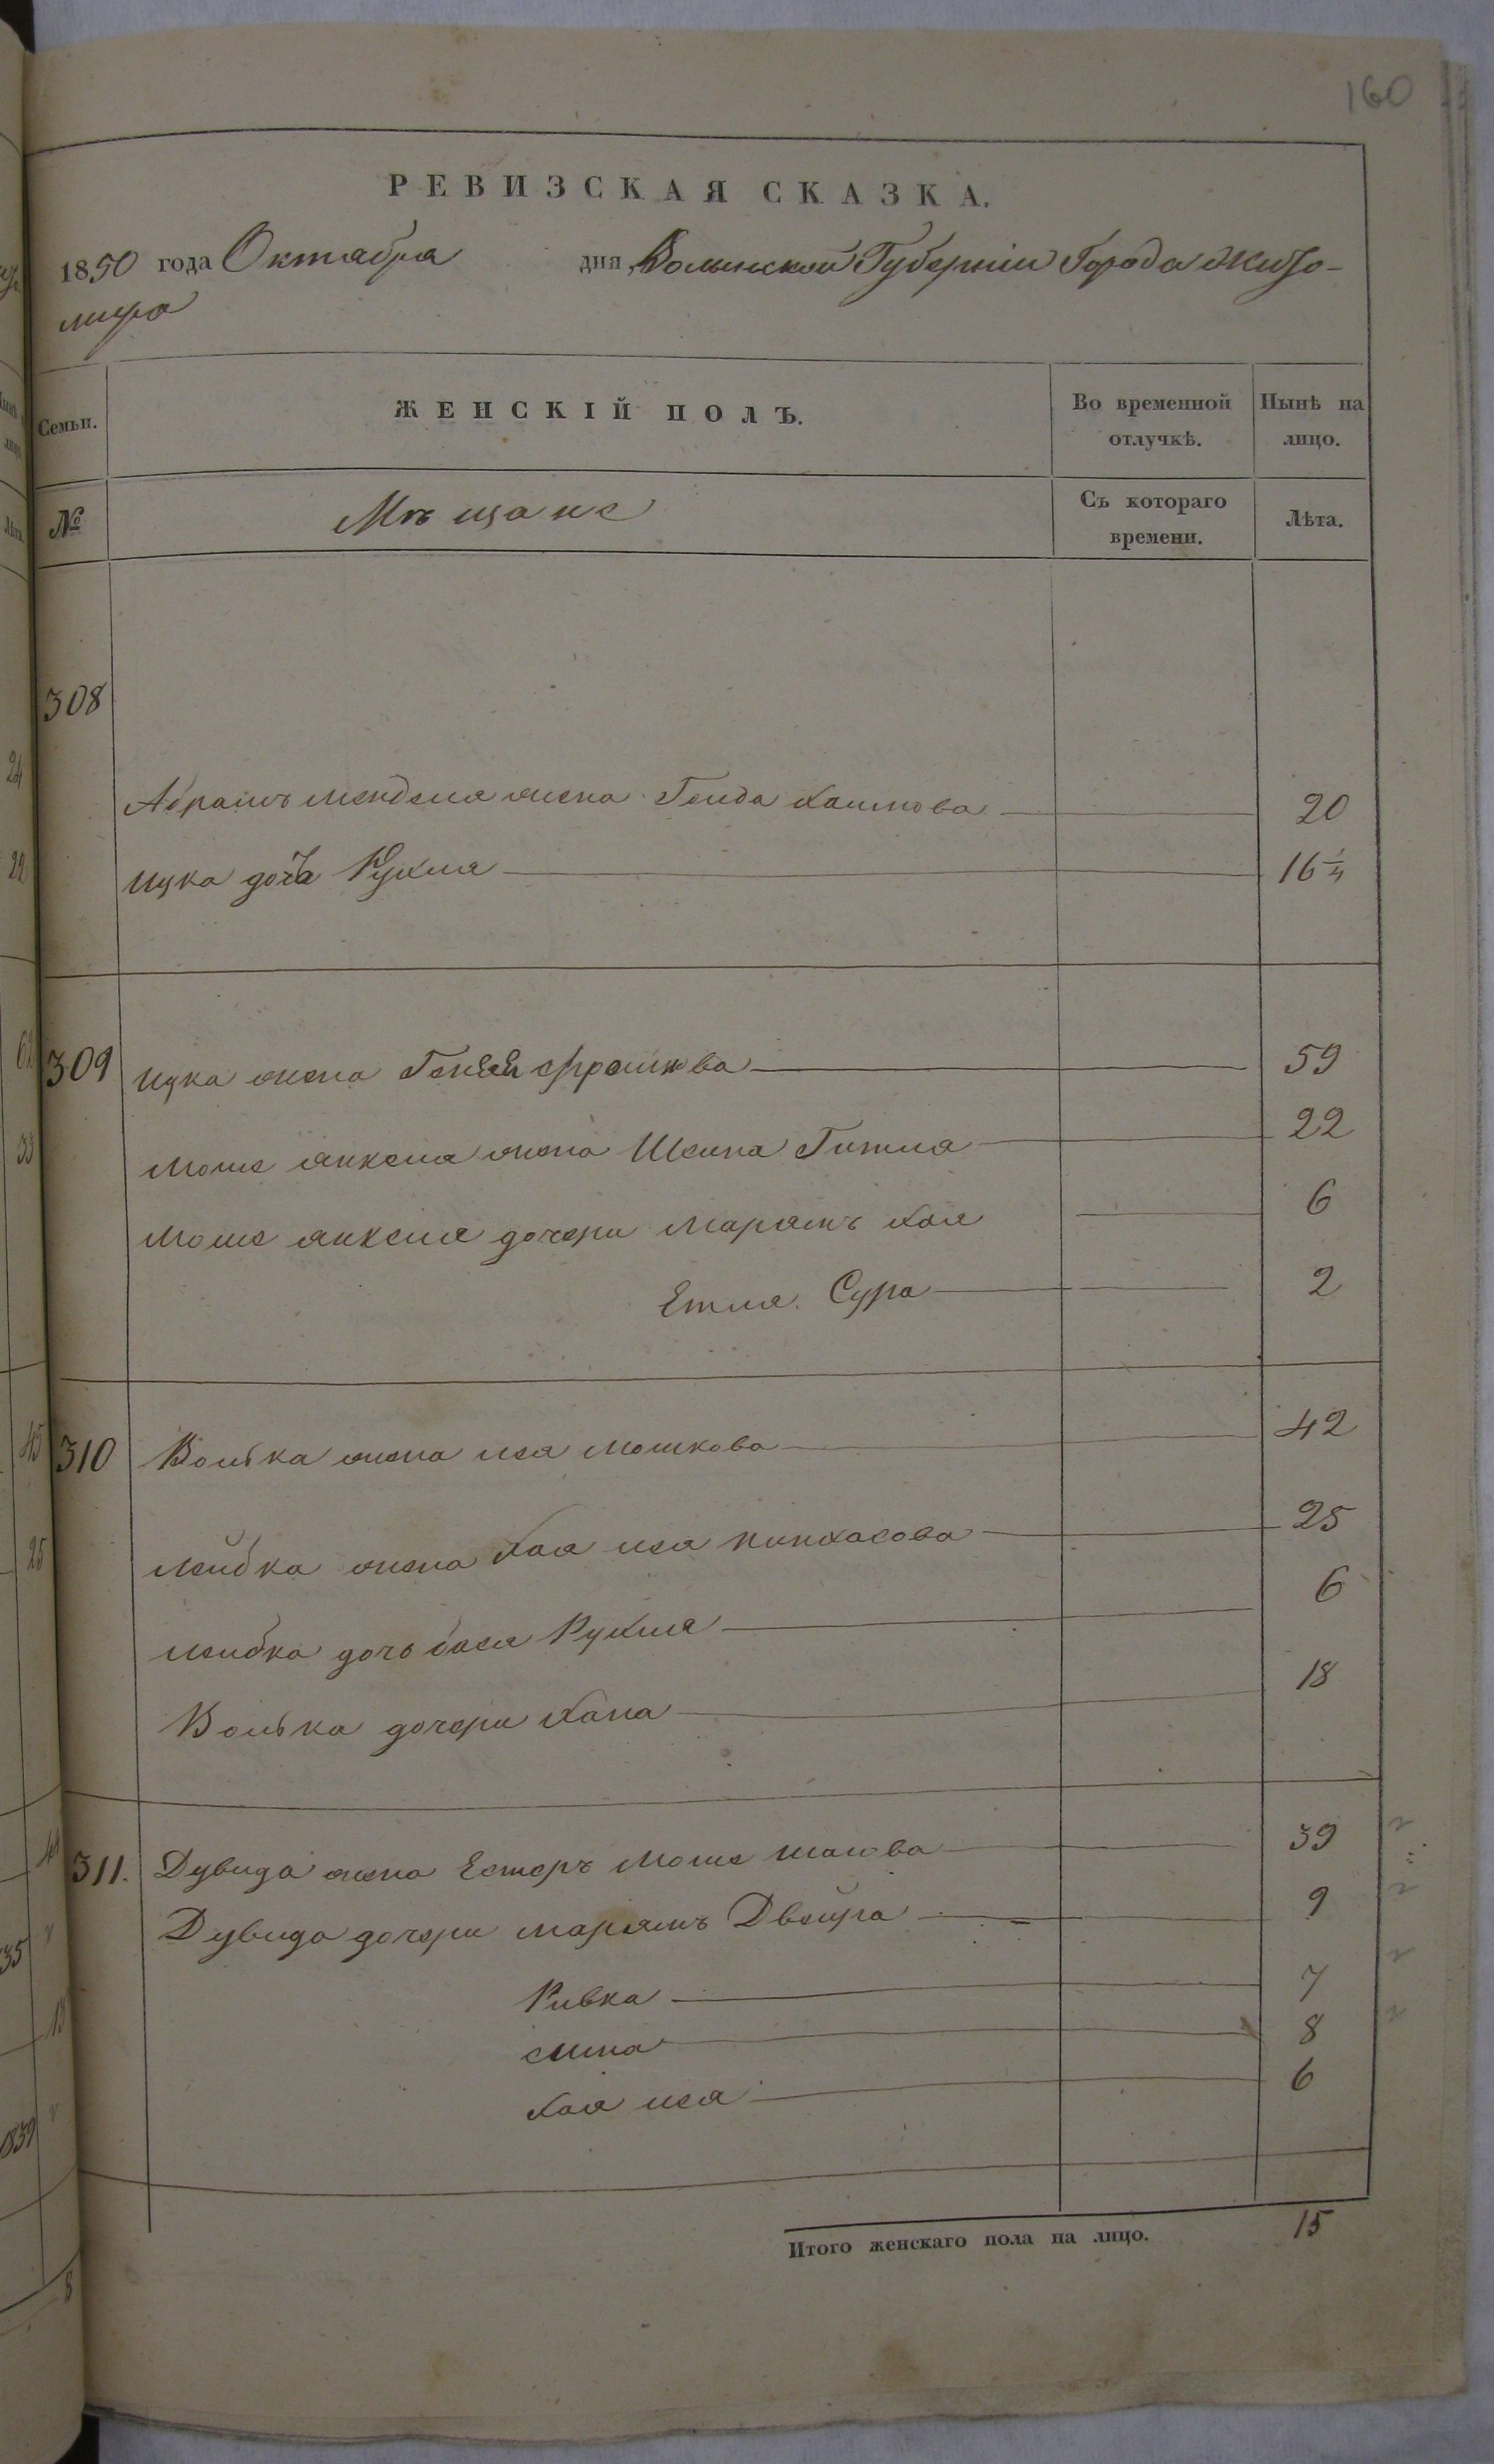 160
РЕВИЗСКАЯ СКАЗКА.
1850 года Октабря дня, Волынской Губерніи Города Жито-
мира
Семьи. ЖЕНСКІЙ ПОЛЪ. Во временной отлучкѣ. Нынѣ на лицо.
№ Мѣщане Съ котораго времени. Лѣта.
308
Абрамъ Менделя жена Генда Хаимова 20
Ицка дочь Рухля 16
309 Ицка жена Фроимова 59
Моше Янкеля жена Шейна Гитля 22
Моше Янкеля дочери Марямъ Хая 6
Етля Сура 2
310 Волька жена Лея Мошкова 42
Лейбка жена Хая Лея Пинхасова 25
Лейбка дочь Бася Рухля 6
Волька дочери Хана 18
311. Дувида жена Естеръ Моше 39
Дувида дочери Марямъ Двейра 9
Ривка 7
Хая Лея 6
8
Итого женскаго пола на лицо. 15